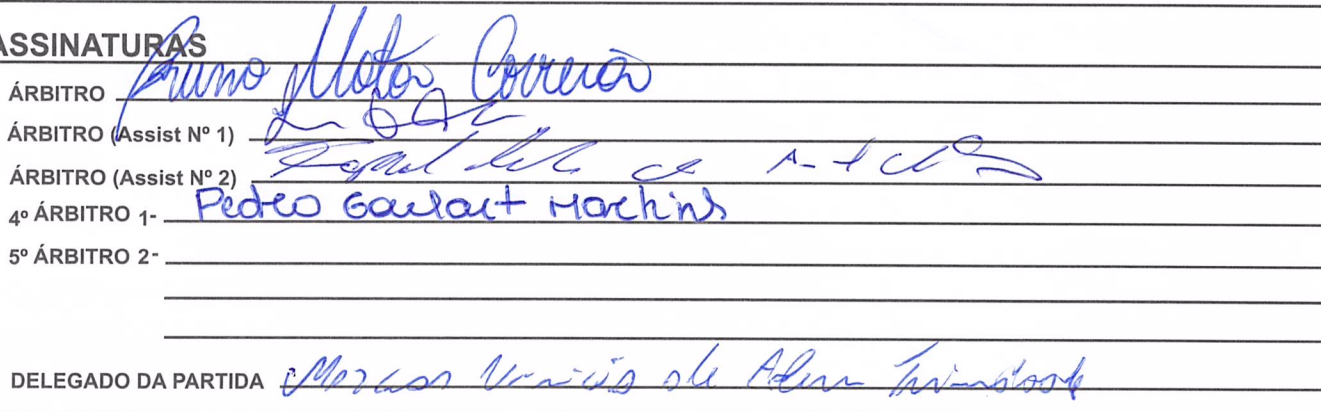 ASSINATURAS
ÁRBITRO Bruno Mota Correia
ÁRBITRO (Assist Nº 1)
ÁRBITRO (Assist Nº 2)
4º ÁRBITRO 1- Pedro Goulart Martins
5º ÁRBITRO 2-
DELEGADO DA PARTIDA Marcos Vinicius de Abreu Trindade